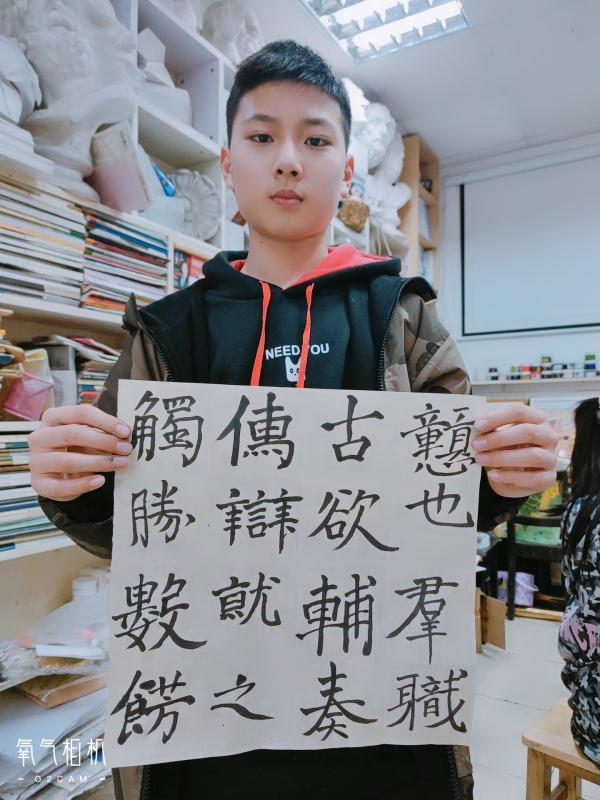 戇也羣職
古欲輔奏
就之
觸勝數餝
NEED YOU
氧气相机
O2CAM